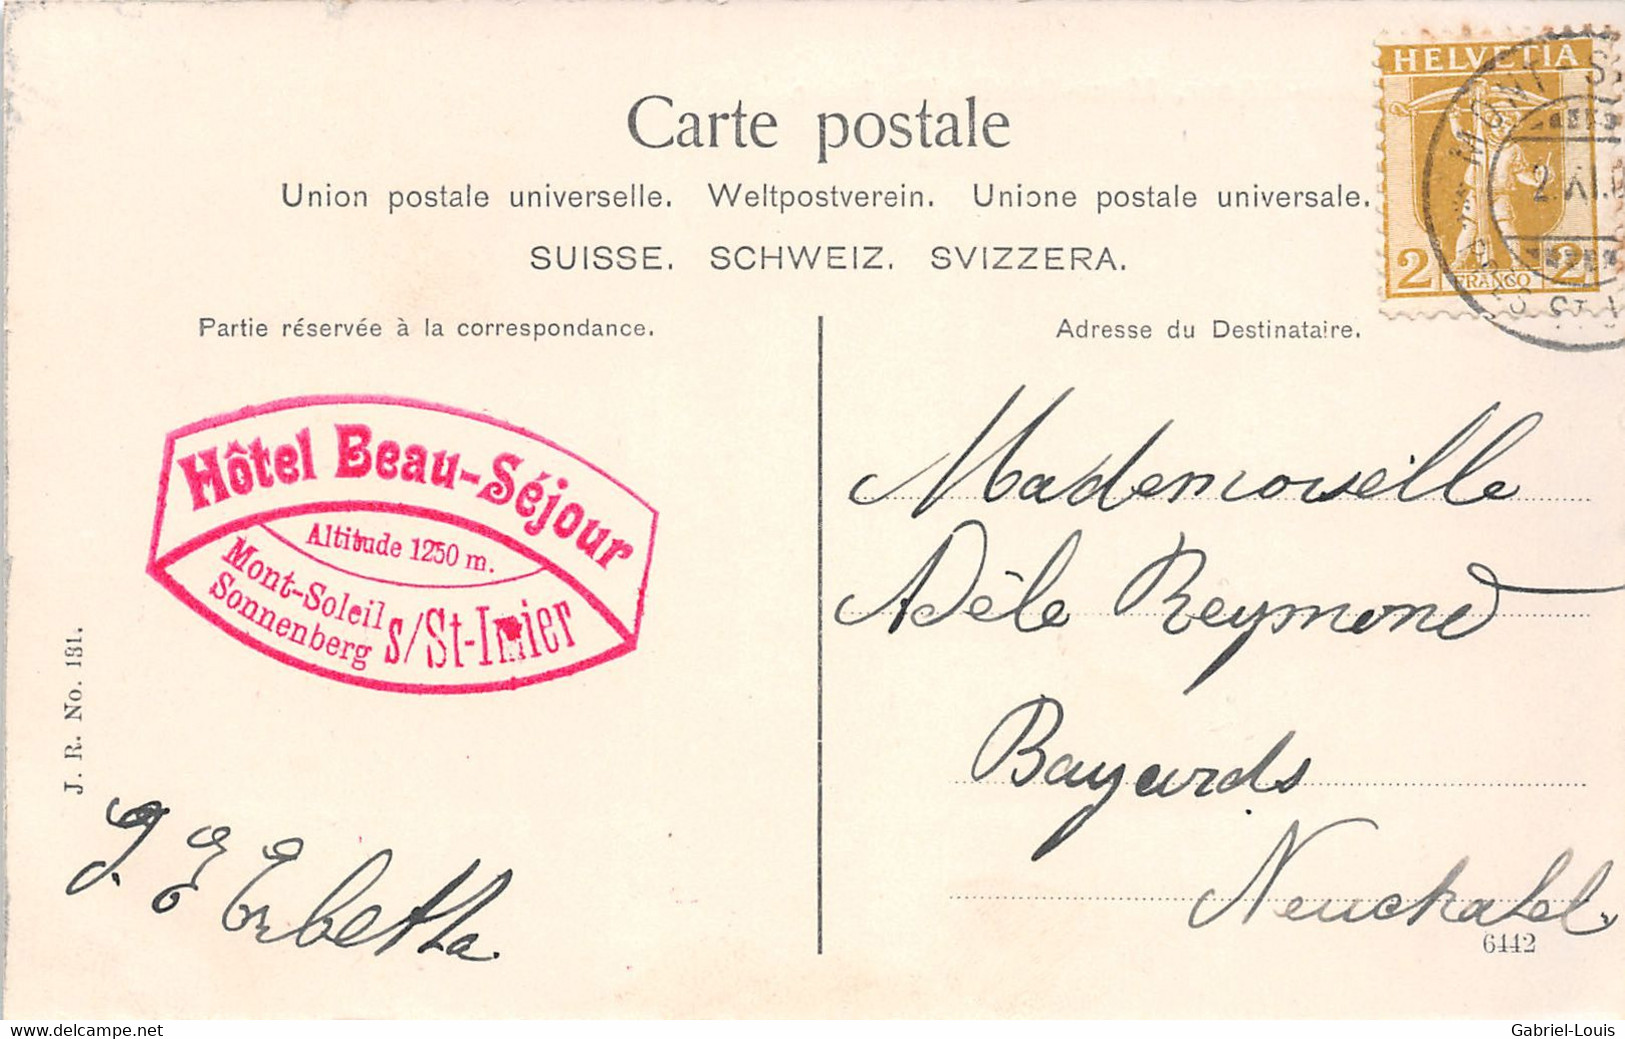 Carte postale
Union postale universelle. Weltpostverein. Unione postale universale.
SUISSE. SCHWEIZ. SVIZZERA.
HELVETIA
2 FRANCO 2
MONT-S
2.XI.0
PRÈS ST-I
Partie réservée à la correspondance.
Adresse du Destinataire.
Hôtel Beau-Séjour
Altitude 1250 m.
Mont-Soleil
Sonnenberg
s/St-Imier
J. R. No. 131.
Mademoiselle
Adèle Reymond
Bayards
Neuchatel.
6442
delcampe.net
Gabriel-Louis